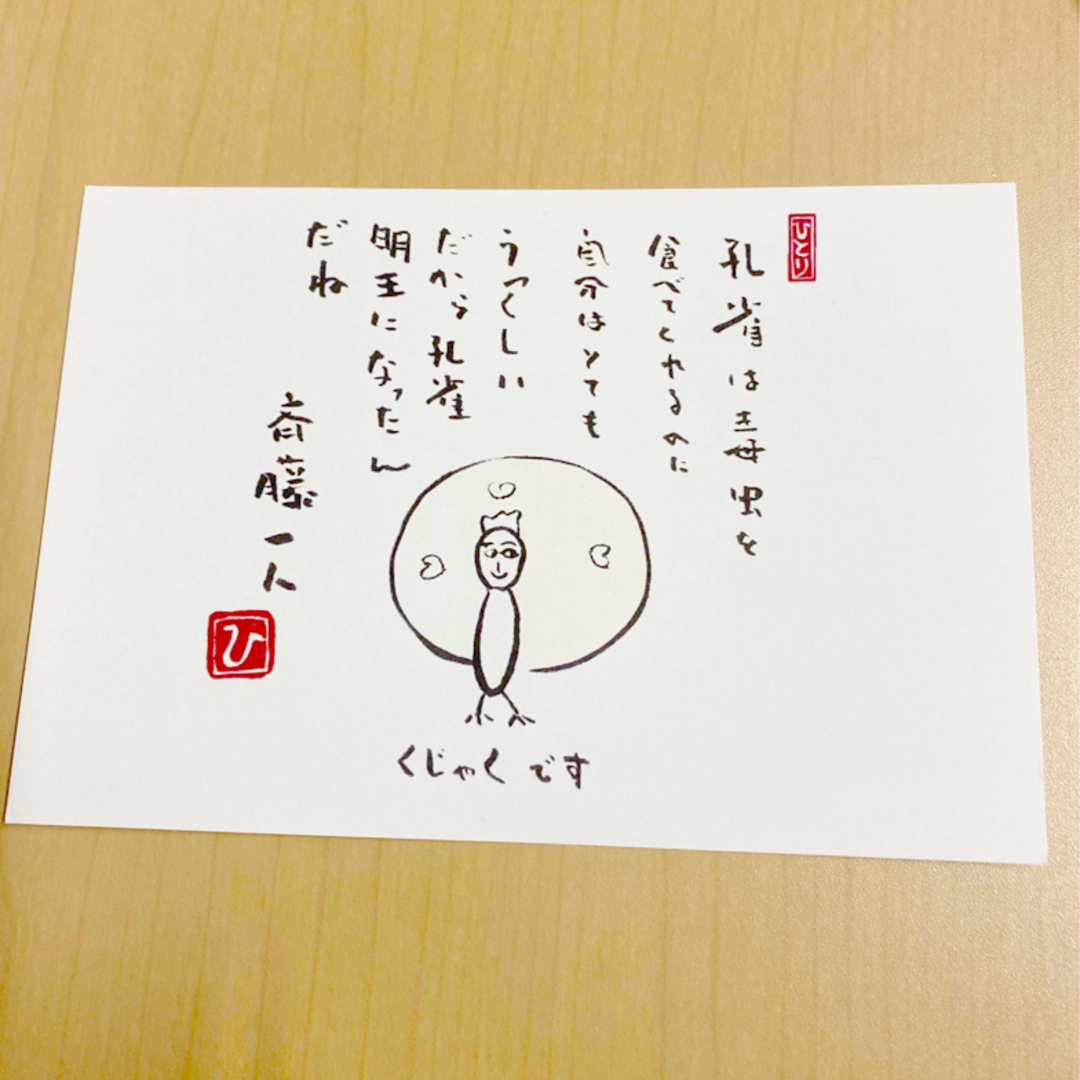 ひとり
孔雀は毒虫を
食べてくれるのに
自分はとても
うつくしい
だから孔雀
明王になったん
だね
斎藤一人
ひ
くじゃくです